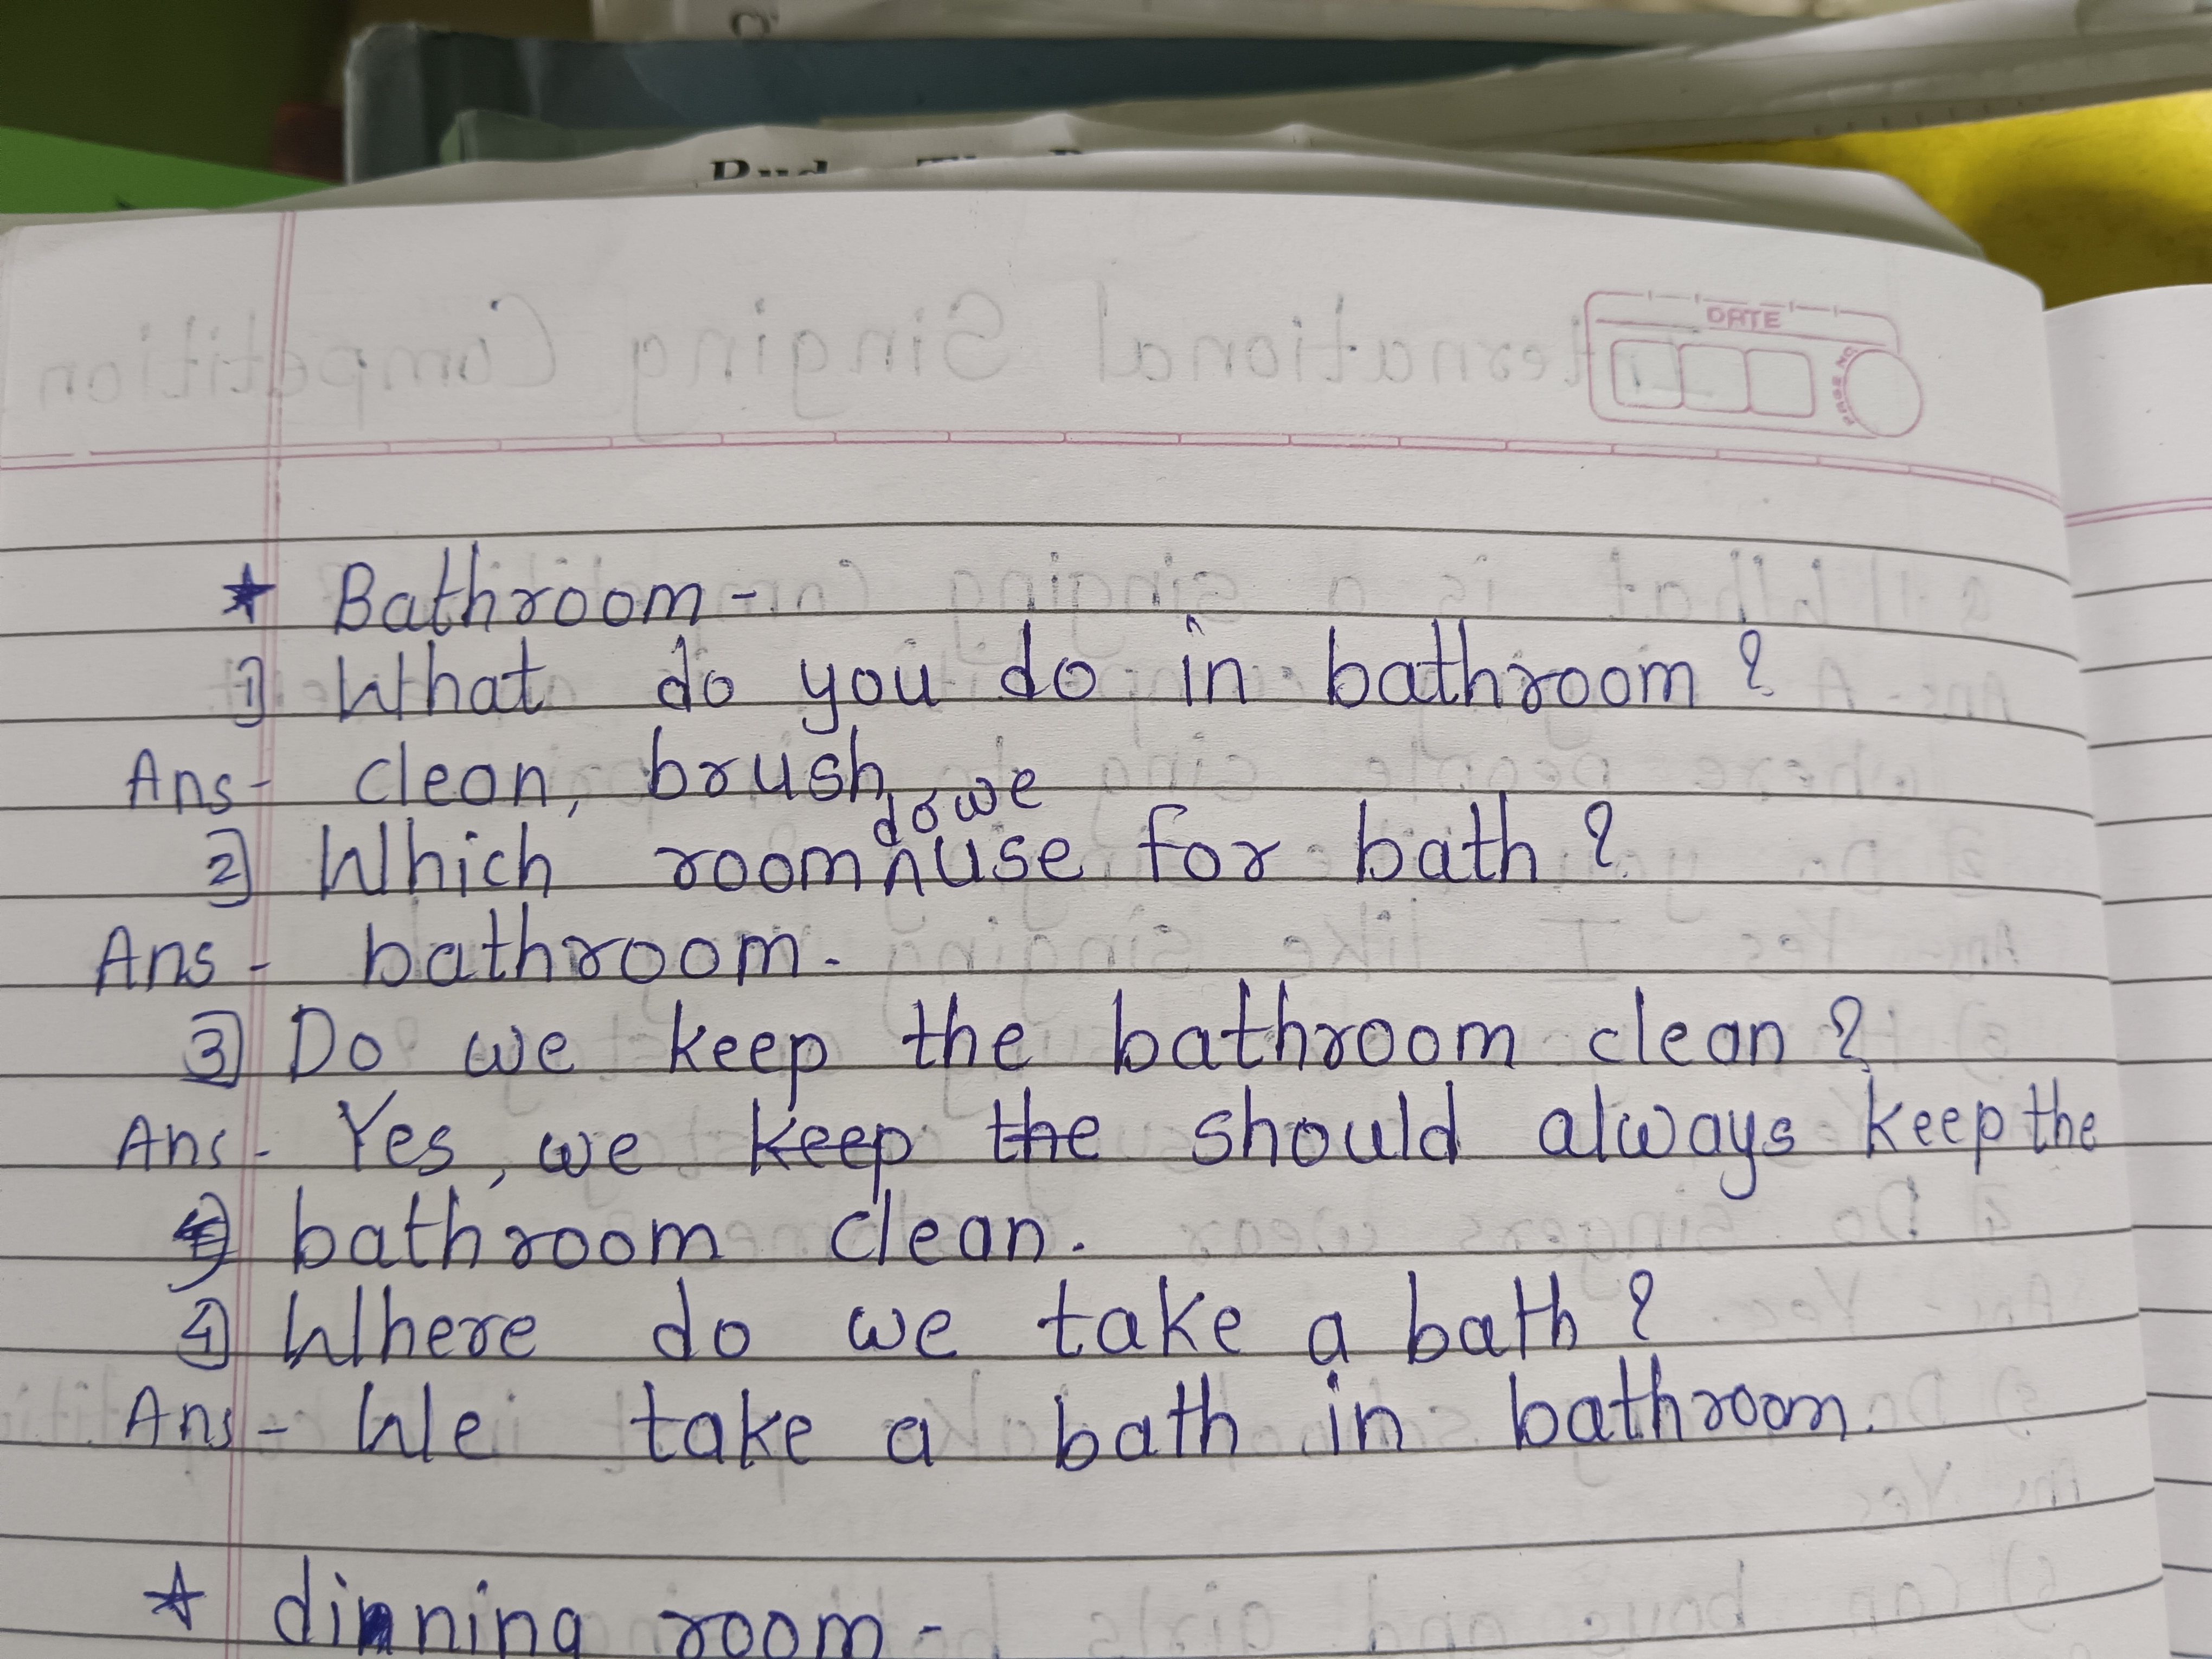 DATE
PAGE NO.
★ Bathroom -
1) What do you do in bathroom ?
Ans - clean, brush
2) Which room do we use for bath ?
Ans - bathroom.
3) Do we keep the bathroom clean ?
Ans - Yes, we keep the should always keep the
bathroom clean.
4) Where do we take a bath ?
Ans - We take a bath in bathroom.
★ dinning room -